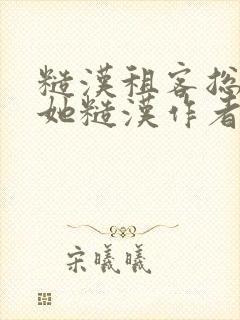 糙漢租客總
她糙漢作者
宋曦曦